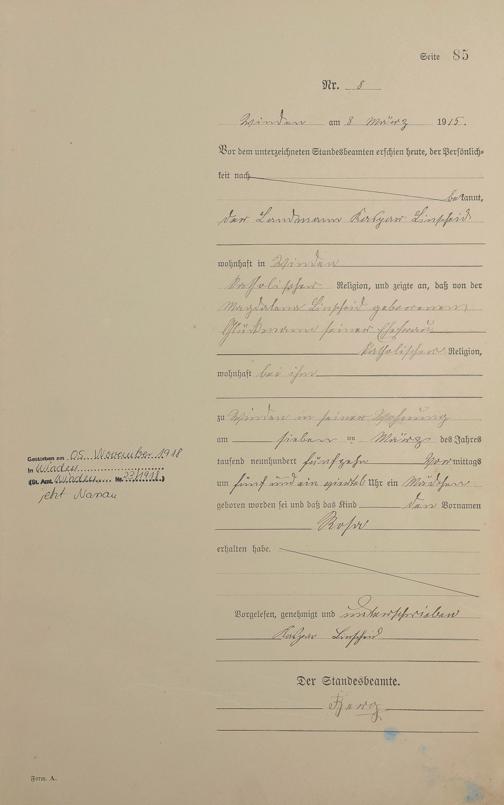 Seite 85
Nr. 8
Winden am 8 März 1915.
Vor dem unterzeichneten Standesbeamten erschien heute, der Persönlich-
keit nach
bekannt,
der Landmann Kaspar Linscheid
wohnhaft in Winden
katholischer Religion, und zeigte an, daß von der
Magdalena Linscheid geborenen
Glückmann seiner Ehefrau
katholischer Religion,
wohnhaft bei ihm
zu Winden in seiner Wohnung
am sieben ten März des Jahres
tausend neunhundert fünfzehn Vormittags
um fünf und ein viertel Uhr ein Mädchen
geboren worden sei und daß das Kind den Vornamen
Rosa
erhalten habe.
Gestorben am 05. November 1918
in
(St. Amt. Nr. /1918.)
jetzt Nanau
Vorgelesen, genehmigt und unterschrieben
Kaspar Linscheid
Der Standesbeamte.
Herz
Form. A.